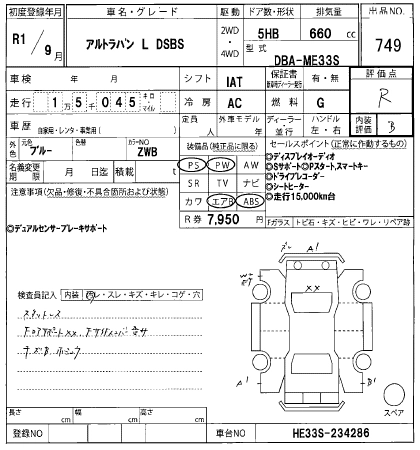 初度登録年月 車名・グレード 駆動 ドア数・形状 排気量 出品NO.
R1/9月 アルトラパン L DSBS 2WD・4WD 5HB 660 cc 749
型式 DBA-ME33S
車検 年 月 シフト IAT 保証書 有・無 評価点
走行 1万5千045キロ・マイル 冷房 AC 燃料 G R
車歴 自家用・レンタ・事業用( ) 定員 人 外車年モデル 年 ディーラー・並行 ハンドル 左・右 内装評価 B
外色 元色 ブルー 色替 カラーNO ZWB 装備品(純正品に限る) セールスポイント(正常に作動するもの)
名義変更期限 月 日迄 積載 t PS PW AW
◎ディスプレイオーディオ
◎Sサポート◎Pスタート,スマートキー
注意事項(欠品・修復・不具合箇所および状態) SR TV ナビ ◎ドライブレコーダー
◎シートヒーター
カワ エアB ABS ◎走行15,000km台
R券 7,950 円 Fガラス トビ石・キズ・ヒビ・ワレ・リペア跡
◎デュアルセンサーブレーキサポート
A1
検査員記入 内装 汚レ・スレ・キズ・キレ・コゲ・穴
XX
A1 B1
スペア
長さ cm 幅 cm 高さ cm
登録NO 車台NO HE33S-234286